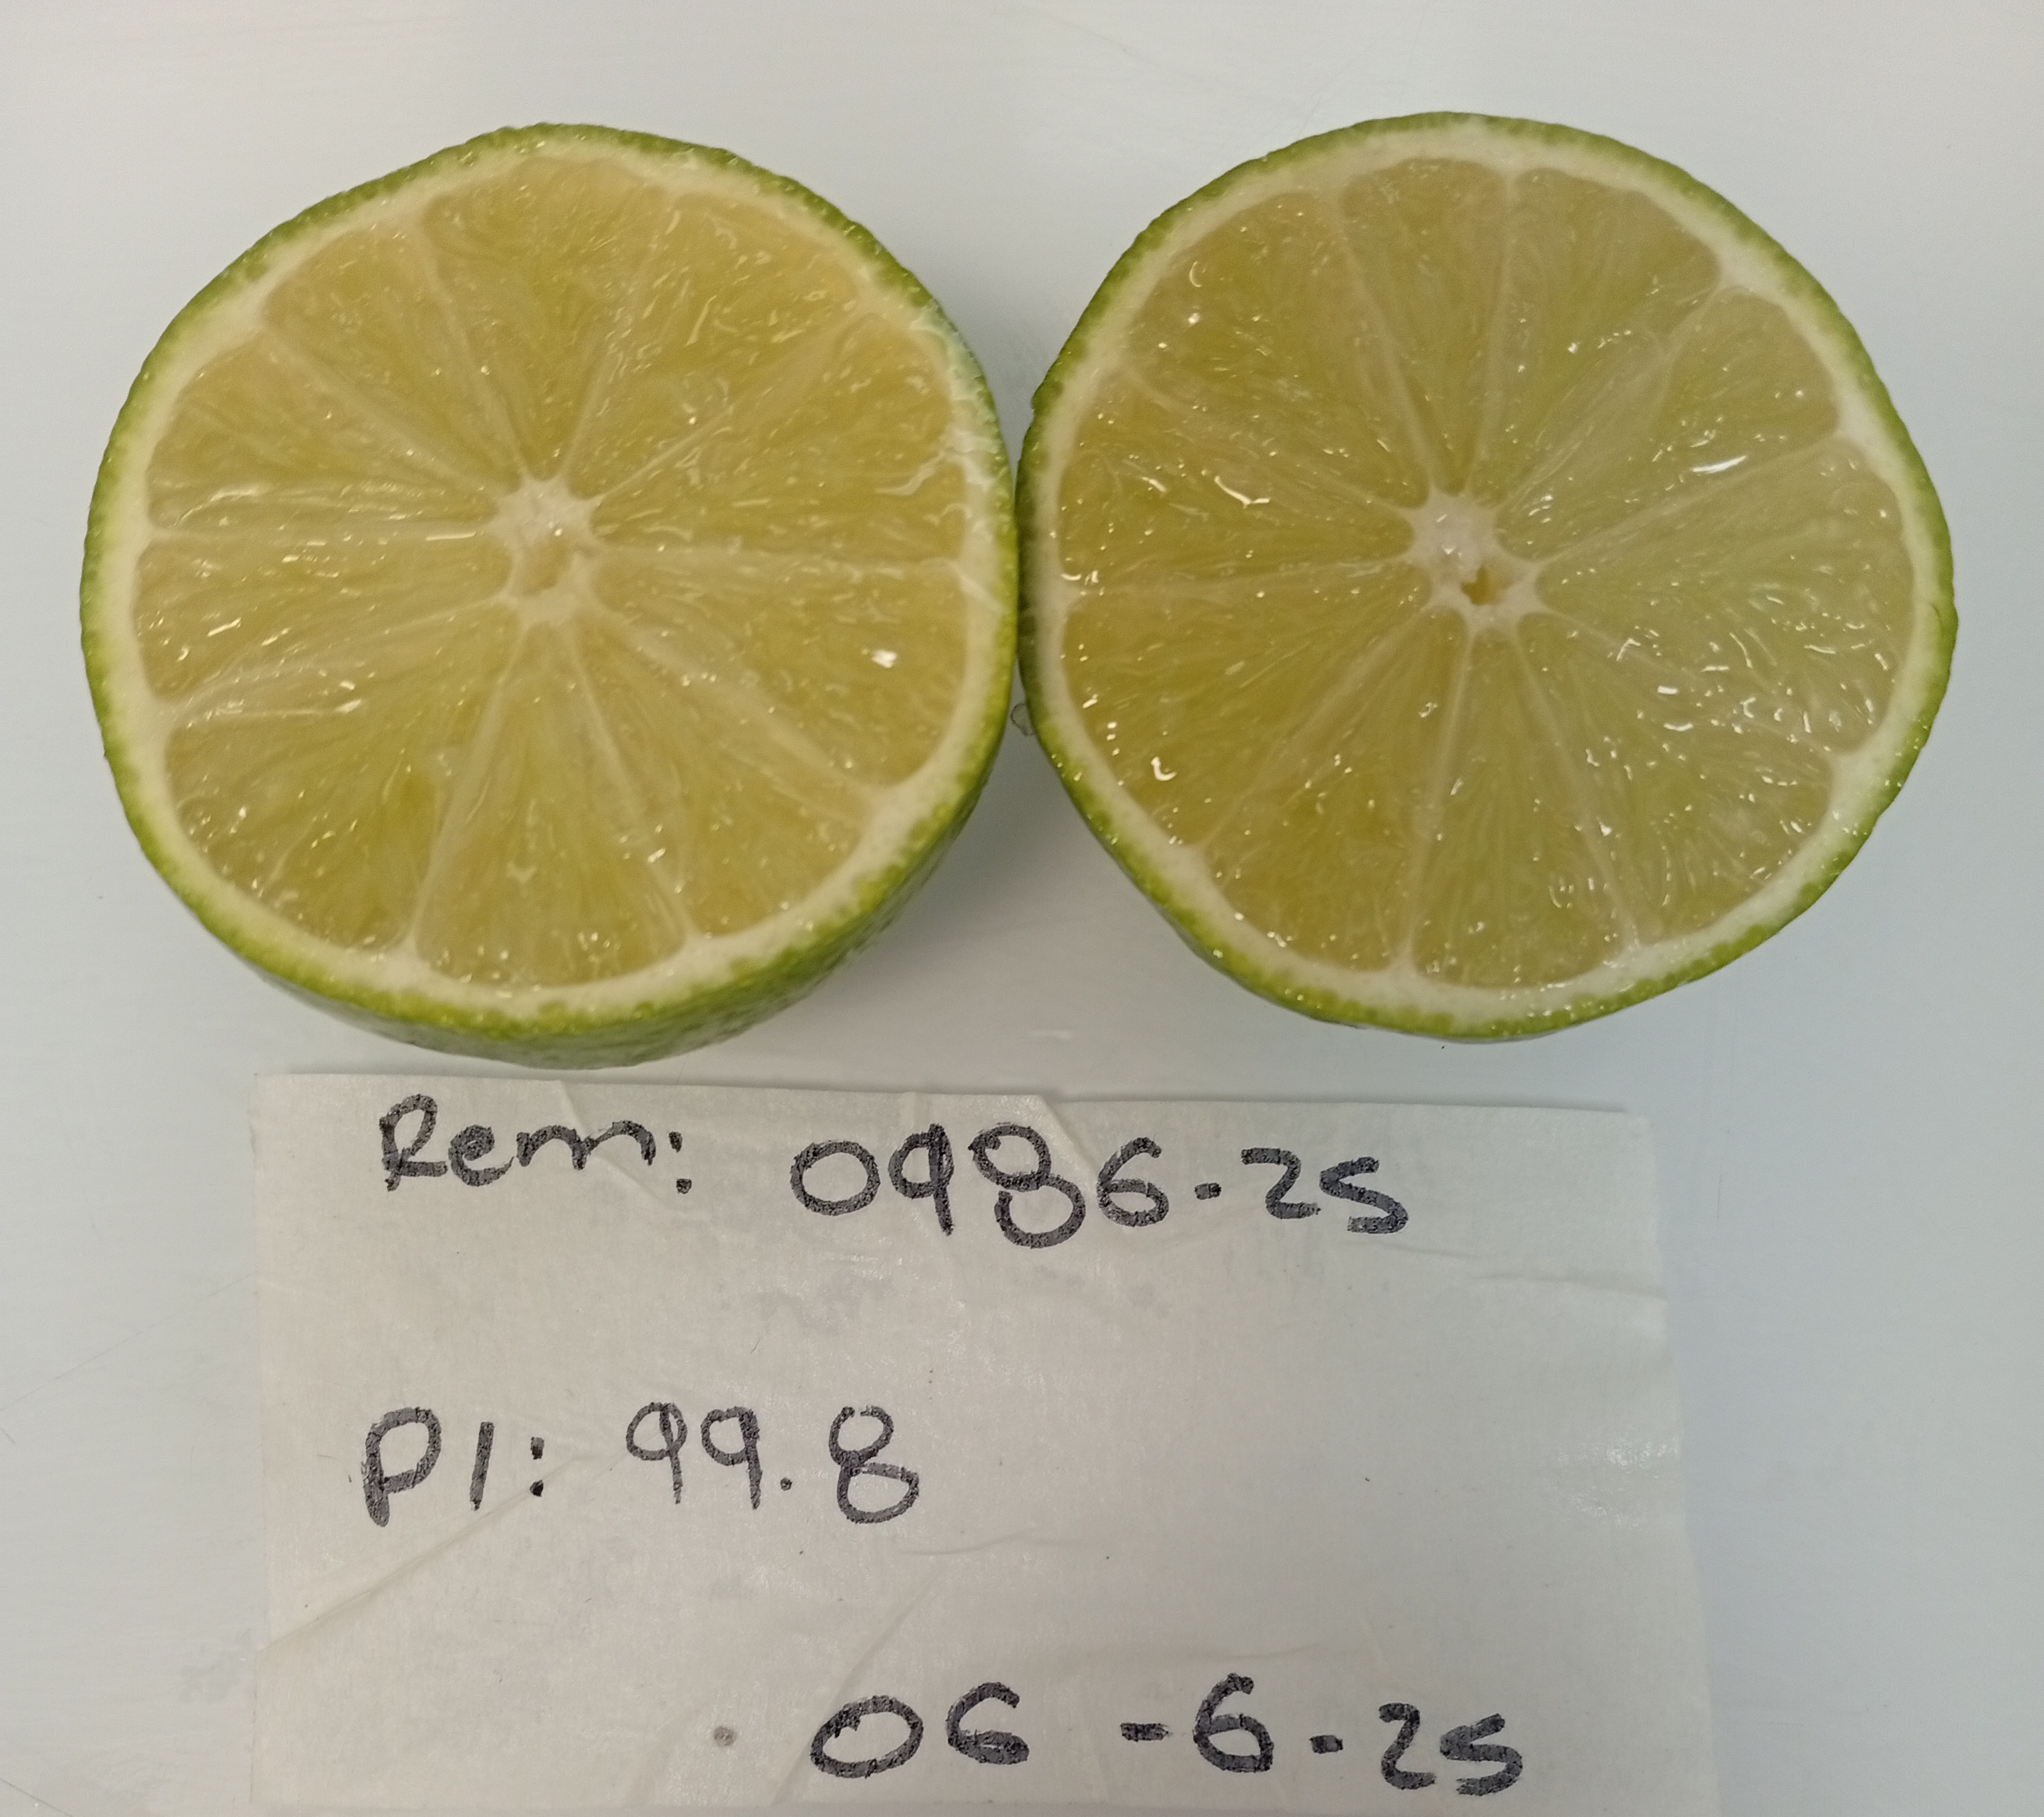 Rem: 0986-25
P1: 99.8
06-6-25